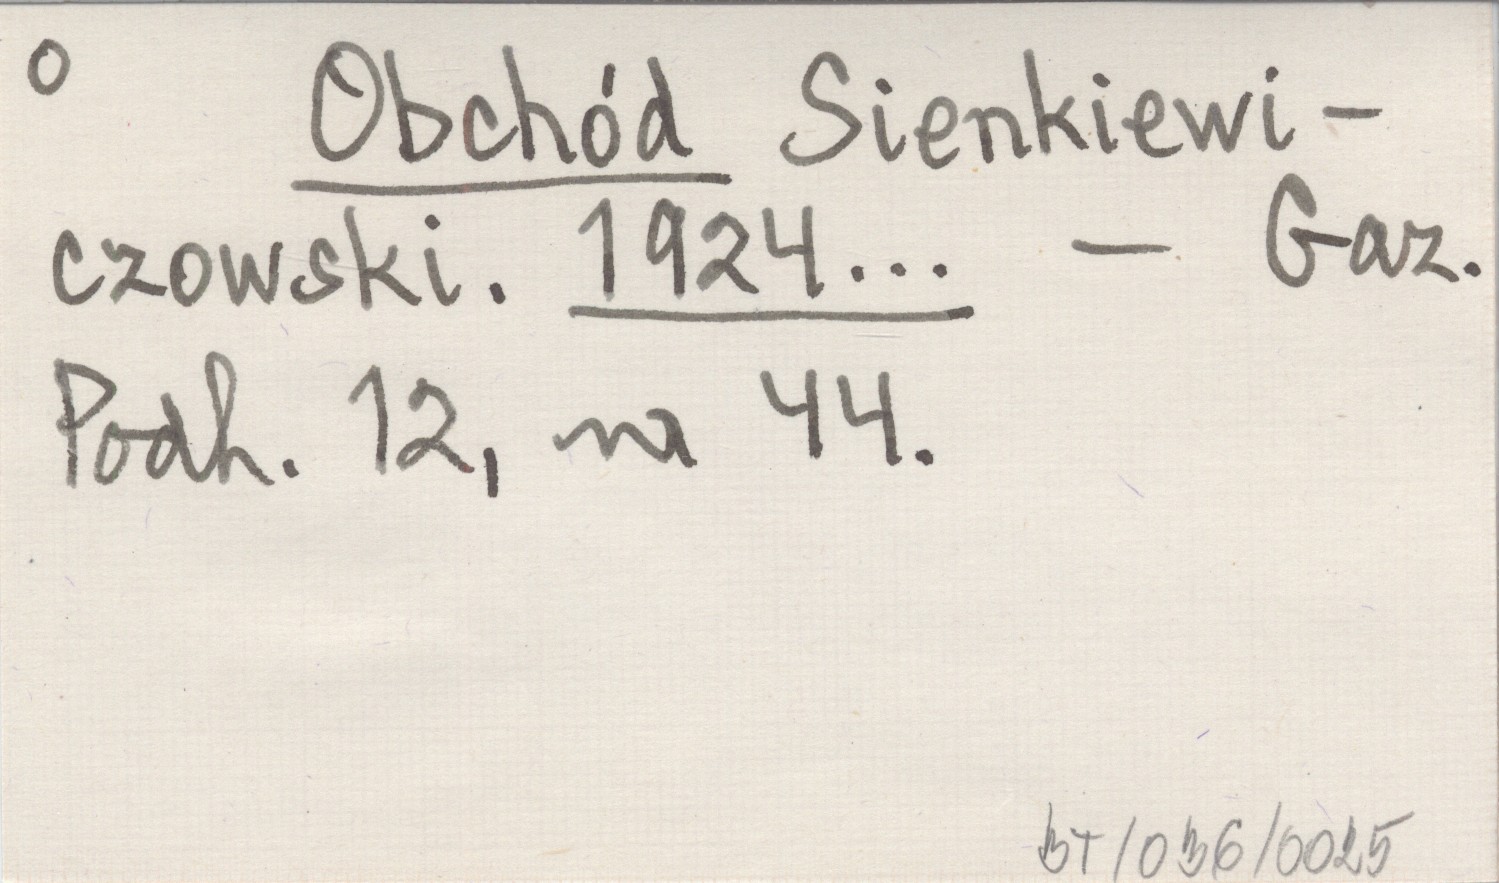 o Obchód Sienkiewi-
czowski. 1924... - Gaz.
Podh. 12, nr 44.
BT/036/0025